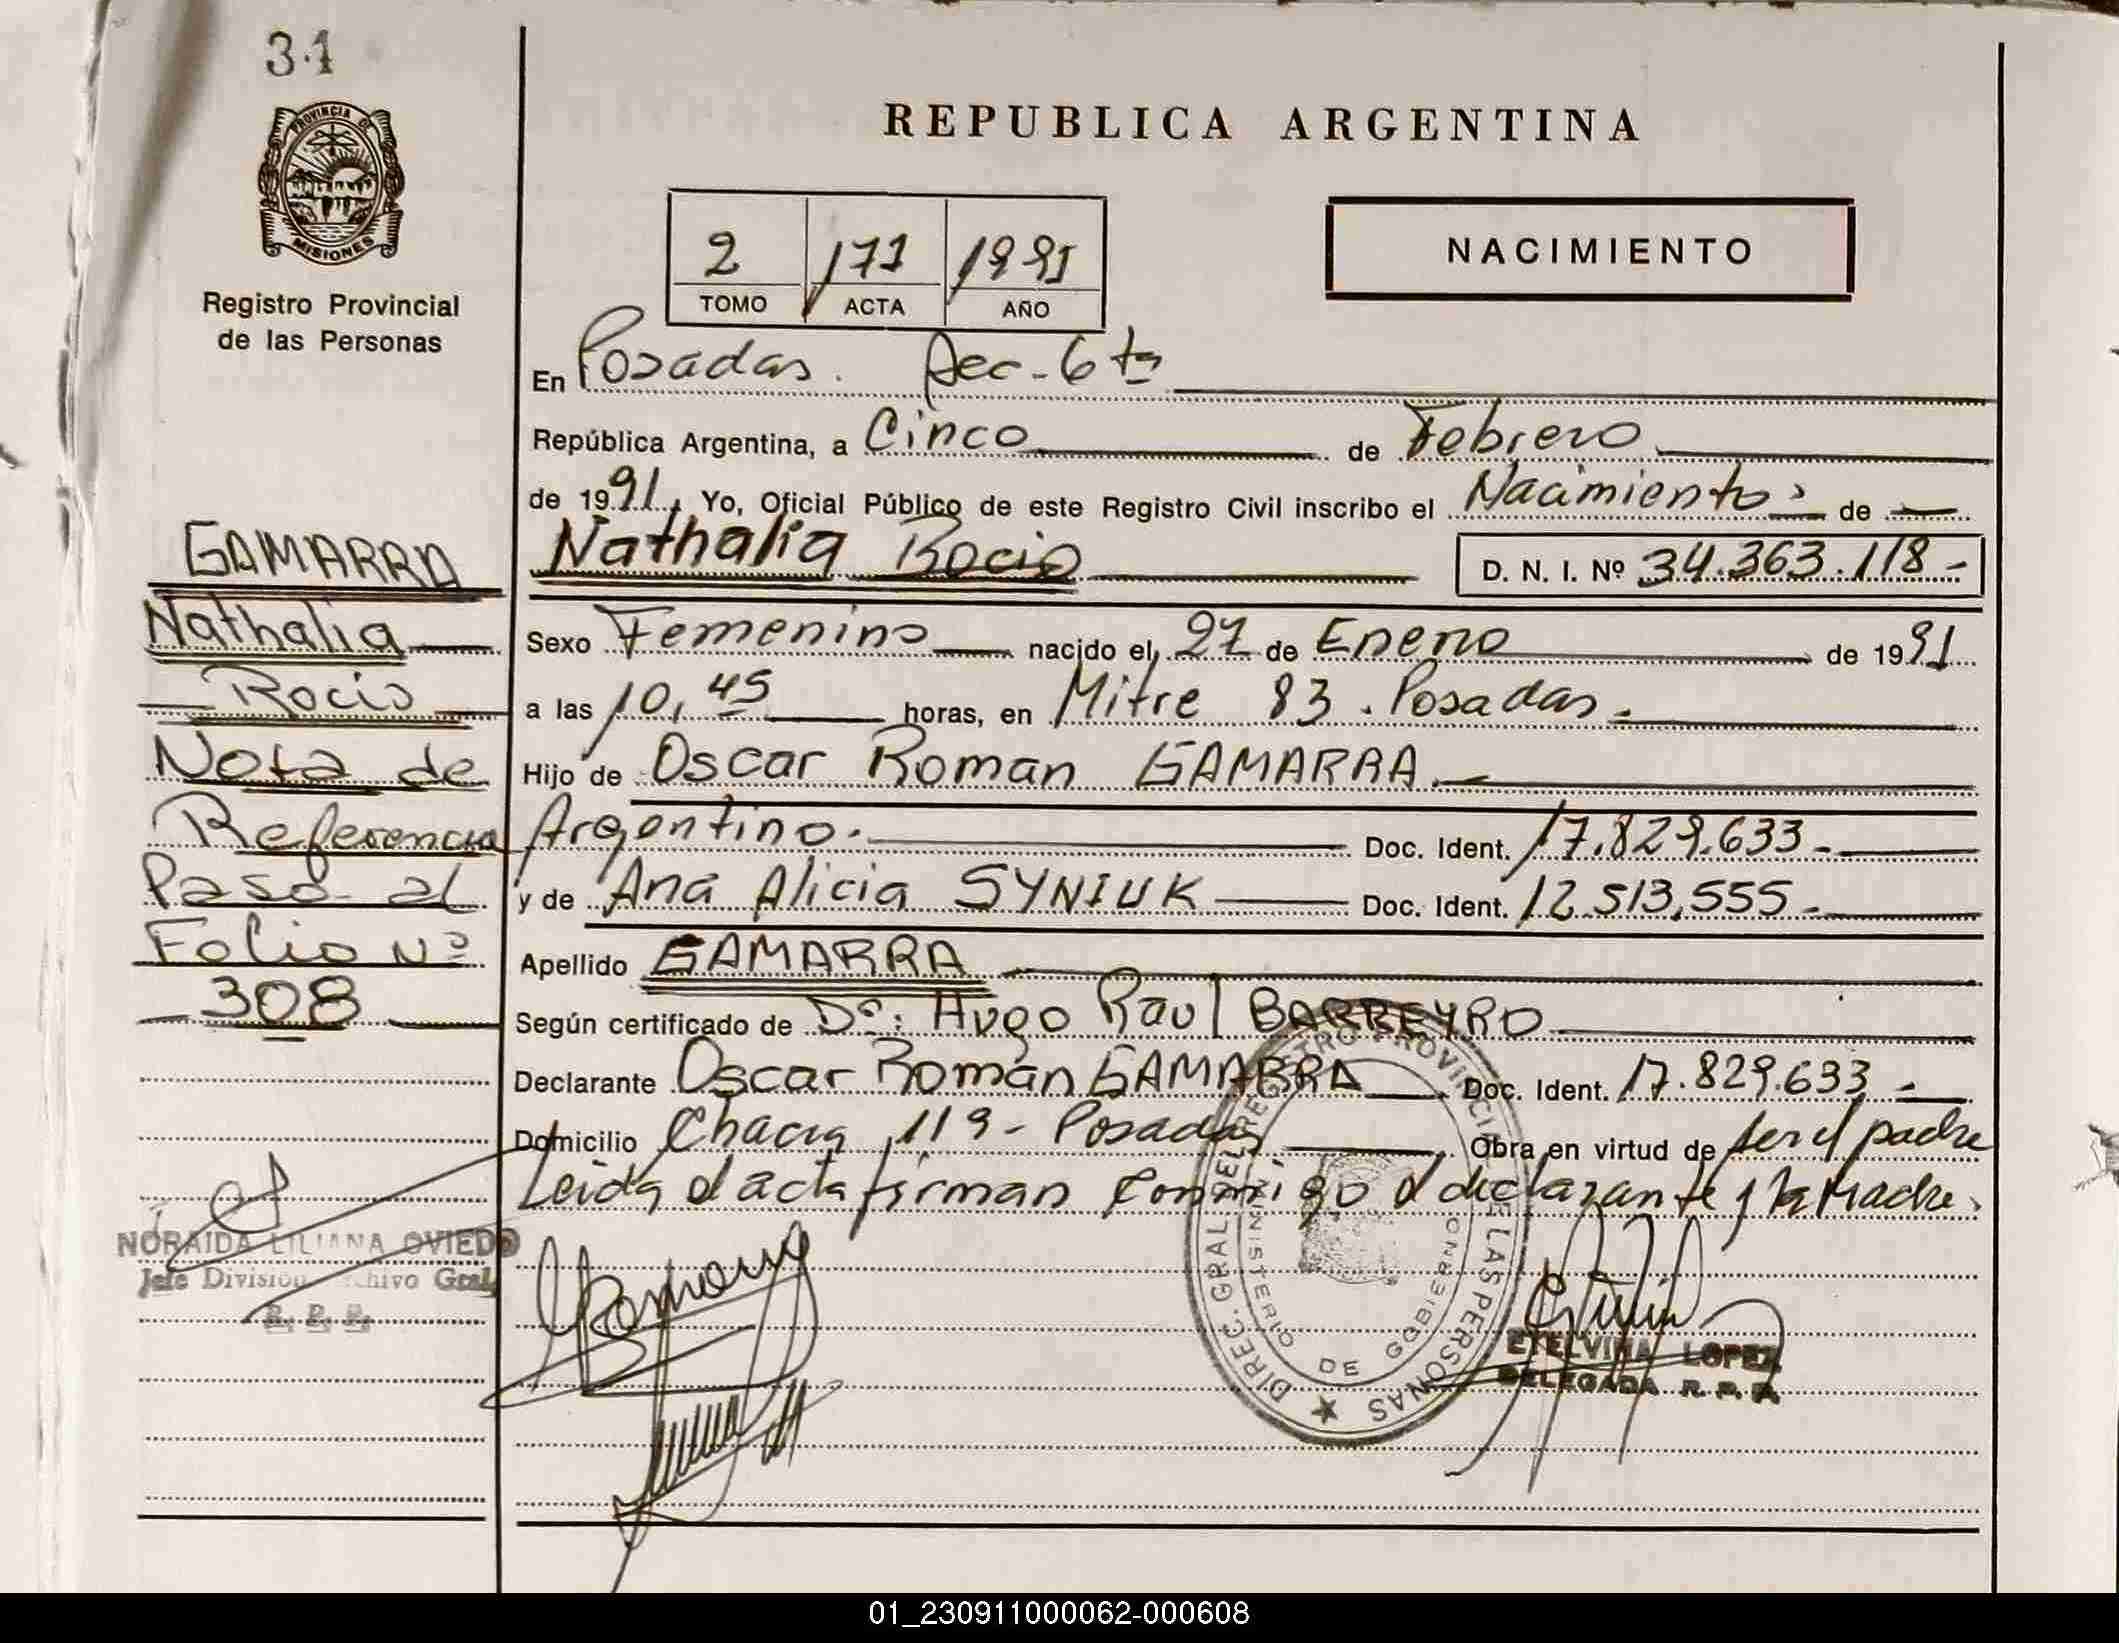 31
PROVINCIA DE
MISIONES
Registro Provincial
de las Personas
REPUBLICA ARGENTINA
2 171 1991
TOMO ACTA AÑO
NACIMIENTO
En Posadas. Sec-6ta
República Argentina, a Cinco de Febrero
de 1991, Yo, Oficial Público de este Registro Civil inscribo el Nacimiento: de
Nathalia Rocio D. N. I. Nº 34.363.118-
Sexo Femenino nacido el 27 de Enero de 1991
a las 10,45 horas, en Mitre 83. Posadas.
Hijo de Oscar Roman GAMARRA
Argentino. Doc. Ident. 17.829.633-
y de Ana Alicia SYNIUK Doc. Ident. 12.513,555-
Apellido GAMARRA
Según certificado de Dr. Hugo Raul BARREYRO
Declarante Oscar Román GAMARRA Doc. Ident. 17.829.633-
Domicilio Chacra 119- Posadas Obra en virtud de ser el padre
Leida el acta firman conmigo el declarante y la Madre.
GAMARRA
Nathalia
Rocio
Nota de
Referencia
Paso al
Folio Nº
308
NORAIDA LILIANA OVIEDO
Jefe División Archivo Gral.
R. P. P.
DIREC. GRAL. DEL REGISTRO PROVINCIAL DE LAS PERSONAS
MINISTERIO DE GOBIERNO
ETELVINA LOPEZ
DELEGADA R. P. P.
01_230911000062-000608